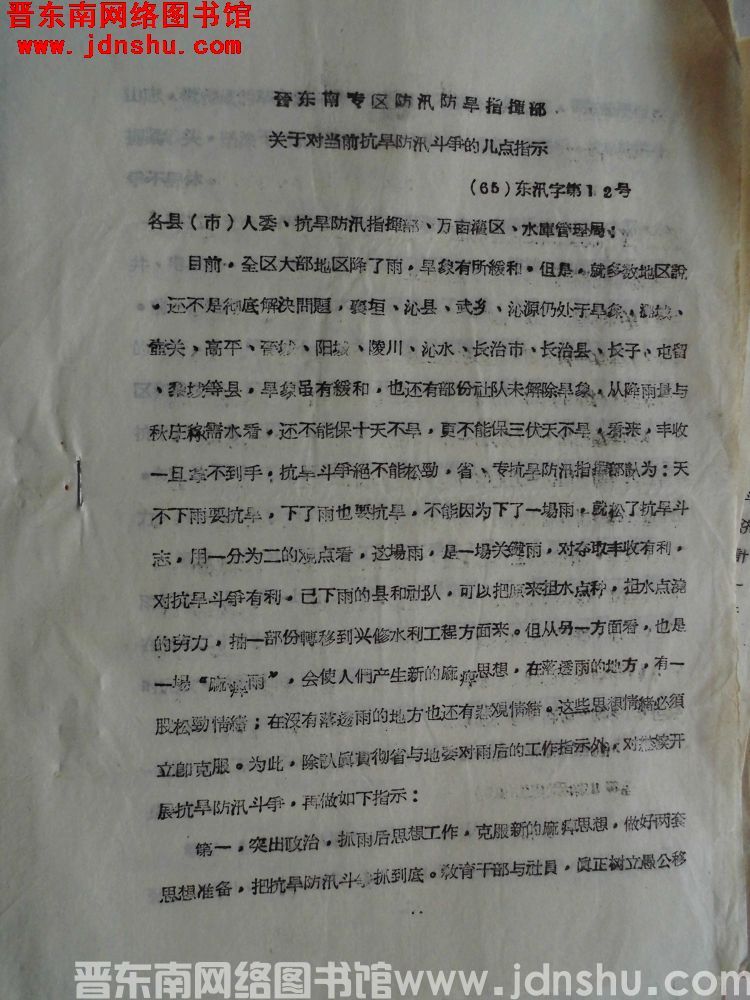 晋东南网络图书馆
www.jdnshu.com
晋东南专区防汛防旱指揮部
关于对当前抗旱防汛斗争的几点指示
(65)东汛字第12号
各县(市)人委、抗旱防汛指揮部、万亩灌区、水庫管理局:
目前,全区大部地区降了雨,旱象有所緩和。但是,就多数地区說
,还不是彻底解决問題,襄垣、沁县、武乡、沁源仍处于旱象,潞城、
壶关、高平、晋城、阳城、陵川、沁水、长治市、长治县、长子、屯留
、黎城等县,旱象虽有緩和,也还有部份社队未解除旱象,从降雨量与
秋庄稼需水看,还不能保十天不旱,更不能保三伏天不旱,看来,丰收
一旦拿不到手,抗旱斗争絕不能松勁,省、专抗旱防汛指揮部認为:天
不下雨要抗旱,下了雨也要抗旱,不能因为下了一場雨,就松了抗旱斗
志,用一分为二的观点看,这場雨,是一場关鍵雨,对夺取丰收有利,
对抗旱斗争有利。已下雨的县和社队,可以把原来担水点种,担水点浇
的劳力,抽一部份轉移到兴修水利工程方面来。但从另一方面看,也是
一場“麻痹雨”,会使人們产生新的麻痹思想,在落透雨的地方,有一
股松勁情緒;在没有落透雨的地方也还有悲观情緒。这些思想情緒必須
立即克服。为此,除認眞貫彻省与地委对雨后的工作指示外,对継续开
展抗旱防汛斗争,再做如下指示:
第一,突出政治,抓雨后思想工作,克服新的麻痹思想,做好两套
思想准备,把抗旱防汛斗争抓到底。敎育干部与社員,眞正树立愚公移
晋东南网络图书馆www.jdnshu.com